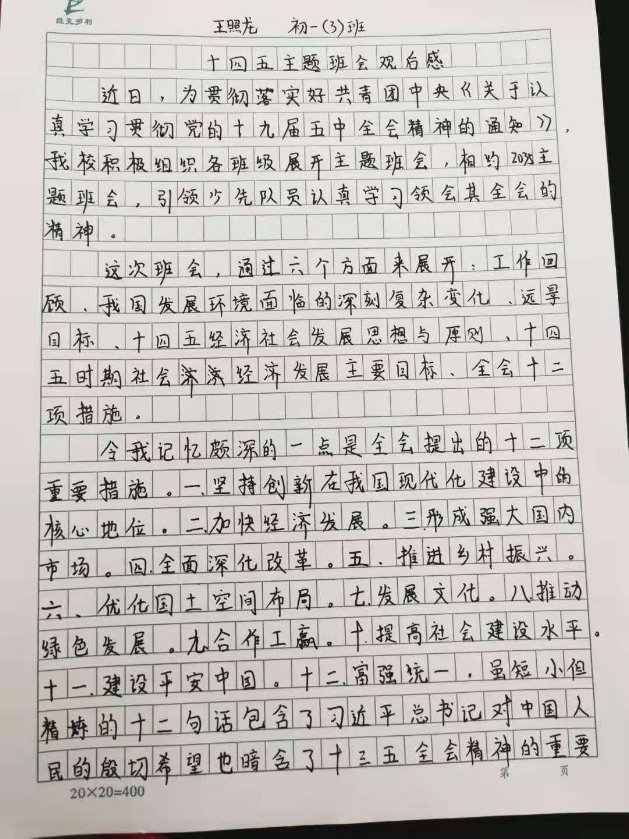 维克多利
王照龙 初一(3)班
十四五主题班会观后感
近日，为贯彻落实好共青团中央《关于认
真学习贯彻党的十九届五中全会精神的通知》，
我校积极组织各班级展开主题班会，相约2035主
题班会，引领少先队员认真学习领会其全会的
精神。
这次班会，通过六个方面来展开：工作回
顾、我国发展环境面临的深刻复杂变化、远景
目标、十四五经济社会发展思想与原则、十四
五时期社会经济发展主要目标、全会十二
项措施。
令我记忆颇深的一点是全会提出的十二项
重要措施。一.坚持创新在我国现代化建设中的
核心地位。二.加快经济发展。三形成强大国内
市场。四.全面深化改革。五、推进乡村振兴。
六、优化国土空间布局。七.发展文化。八.推动
绿色发展。九.合作工赢。十.提高社会建设水平。
十一.建设平安中国。十二.富强统一，虽短小但
精炼的十二句话包含了习近平总书记对中国人
民的殷切希望也暗含了十三五全会精神的重要
第 页
20×20=400